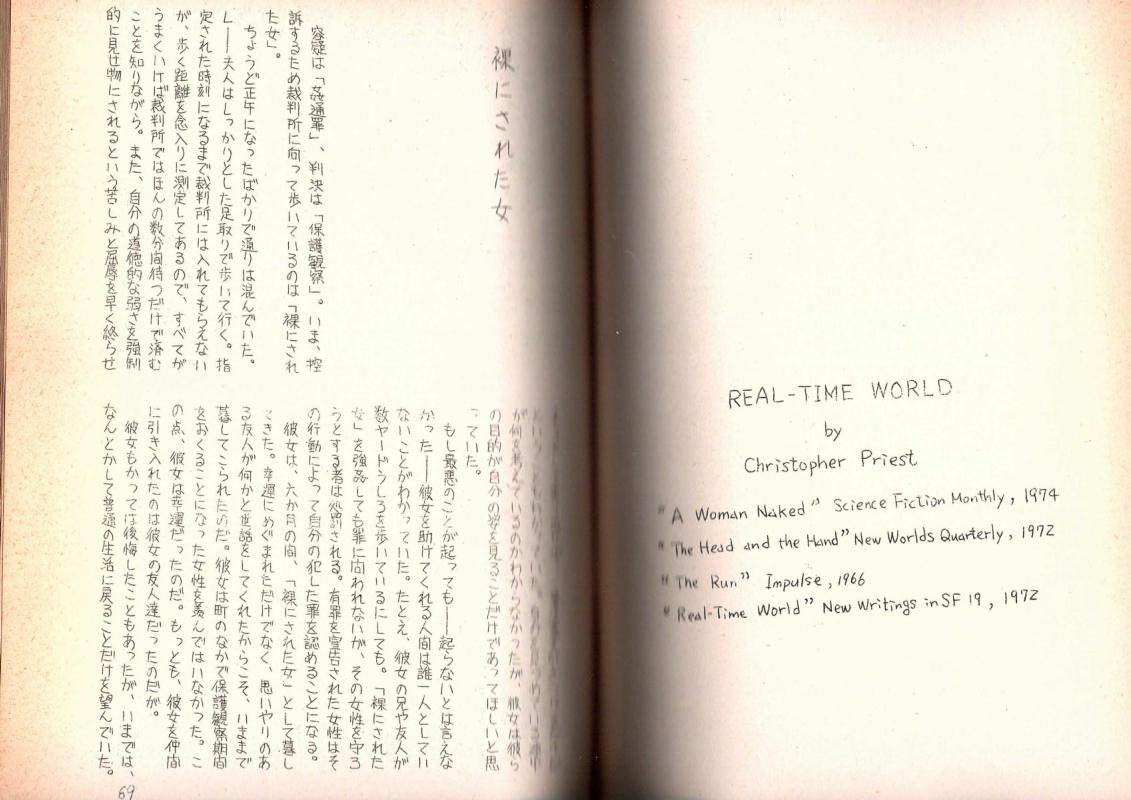 REAL-TIME WORLD
by
Christopher Priest
"A Woman Naked" Science Fiction Monthly, 1974
"The Head and the Hand" New Worlds Quarterly, 1972
"The Run" Impulse, 1966
"Real-Time World" New Writings in SF 19, 1972
裸にされた女
容疑は「姦通罪」、判決は「保護観察」。いま、控
訴するため裁判所に向って歩いているのは「裸にされ
た女」。
ちょうど正午になったばかりで通りは混んでいた。
L――夫人はしっかりとした足取りで歩いて行く。指
定された時刻になるまで裁判所には入れてもらえない
が、歩く距離を念入りに測定してあるので、すべてが
うまくいけば裁判所ではほんの数分間待つだけで済む
ことを知りながら。また、自分の道徳的な弱さを強制
的に見せ物にされるという苦しみと屈辱を早く終らせ
が何を考えているのかわからなかったが、彼女は彼ら
の目的が自分の姿を見ることだけであってほしいと思
っていた。
もし最悪のことが起っても――起らないとは言えな
かった――彼女を助けてくれる人間は誰一人としてい
ないことがわかっていた。たとえ、彼女の兄や友人が
数ヤードうしろを歩いているにしても。「裸にされた
女」を強姦しても罪に問われないが、その女性を守ろ
うとする者は処罰される。有罪を宣告された女性はそ
の行動によって自分の犯した罪を認めることになる。
彼女は、六か月の間、「裸にされた女」として暮し
てきた。幸運にめぐまれただけでなく、思いやりのあ
る友人が何かと世話をしてくれたからこそ、いままで
暮してこられたのだ。彼女は町のなかで保護観察期間
をおくることになった女性を羨んではいなかった。こ
の点、彼女は幸運だったのだ。もっとも、彼女を仲間
に引き入れたのは彼女の友人達だったのだが。
彼女もかつては後悔したこともあったが、いまでは、
なんとかして普通の生活に戻ることだけを望んでいた。
69